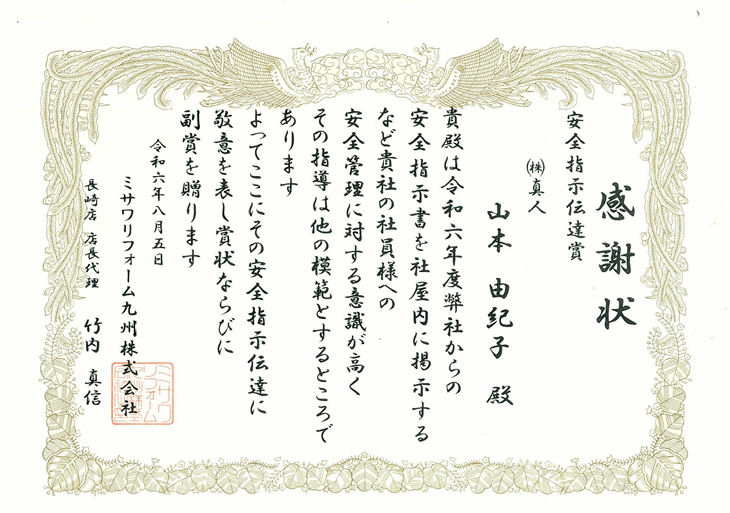 感謝状
安全指示伝達賞
㈱真人
山本 由紀子 殿
貴殿は令和六年度弊社からの
安全指示書を社屋内に掲示する
など貴社の社員様への
安全管理に対する意識が高く
その指導は他の模範とするところで
あります
よってここにその安全指示伝達に
敬意を表し賞状ならびに
副賞を贈ります
令和六年八月五日
ミサワリフォーム九州株式会社
長崎店 店長代理 竹内 真信